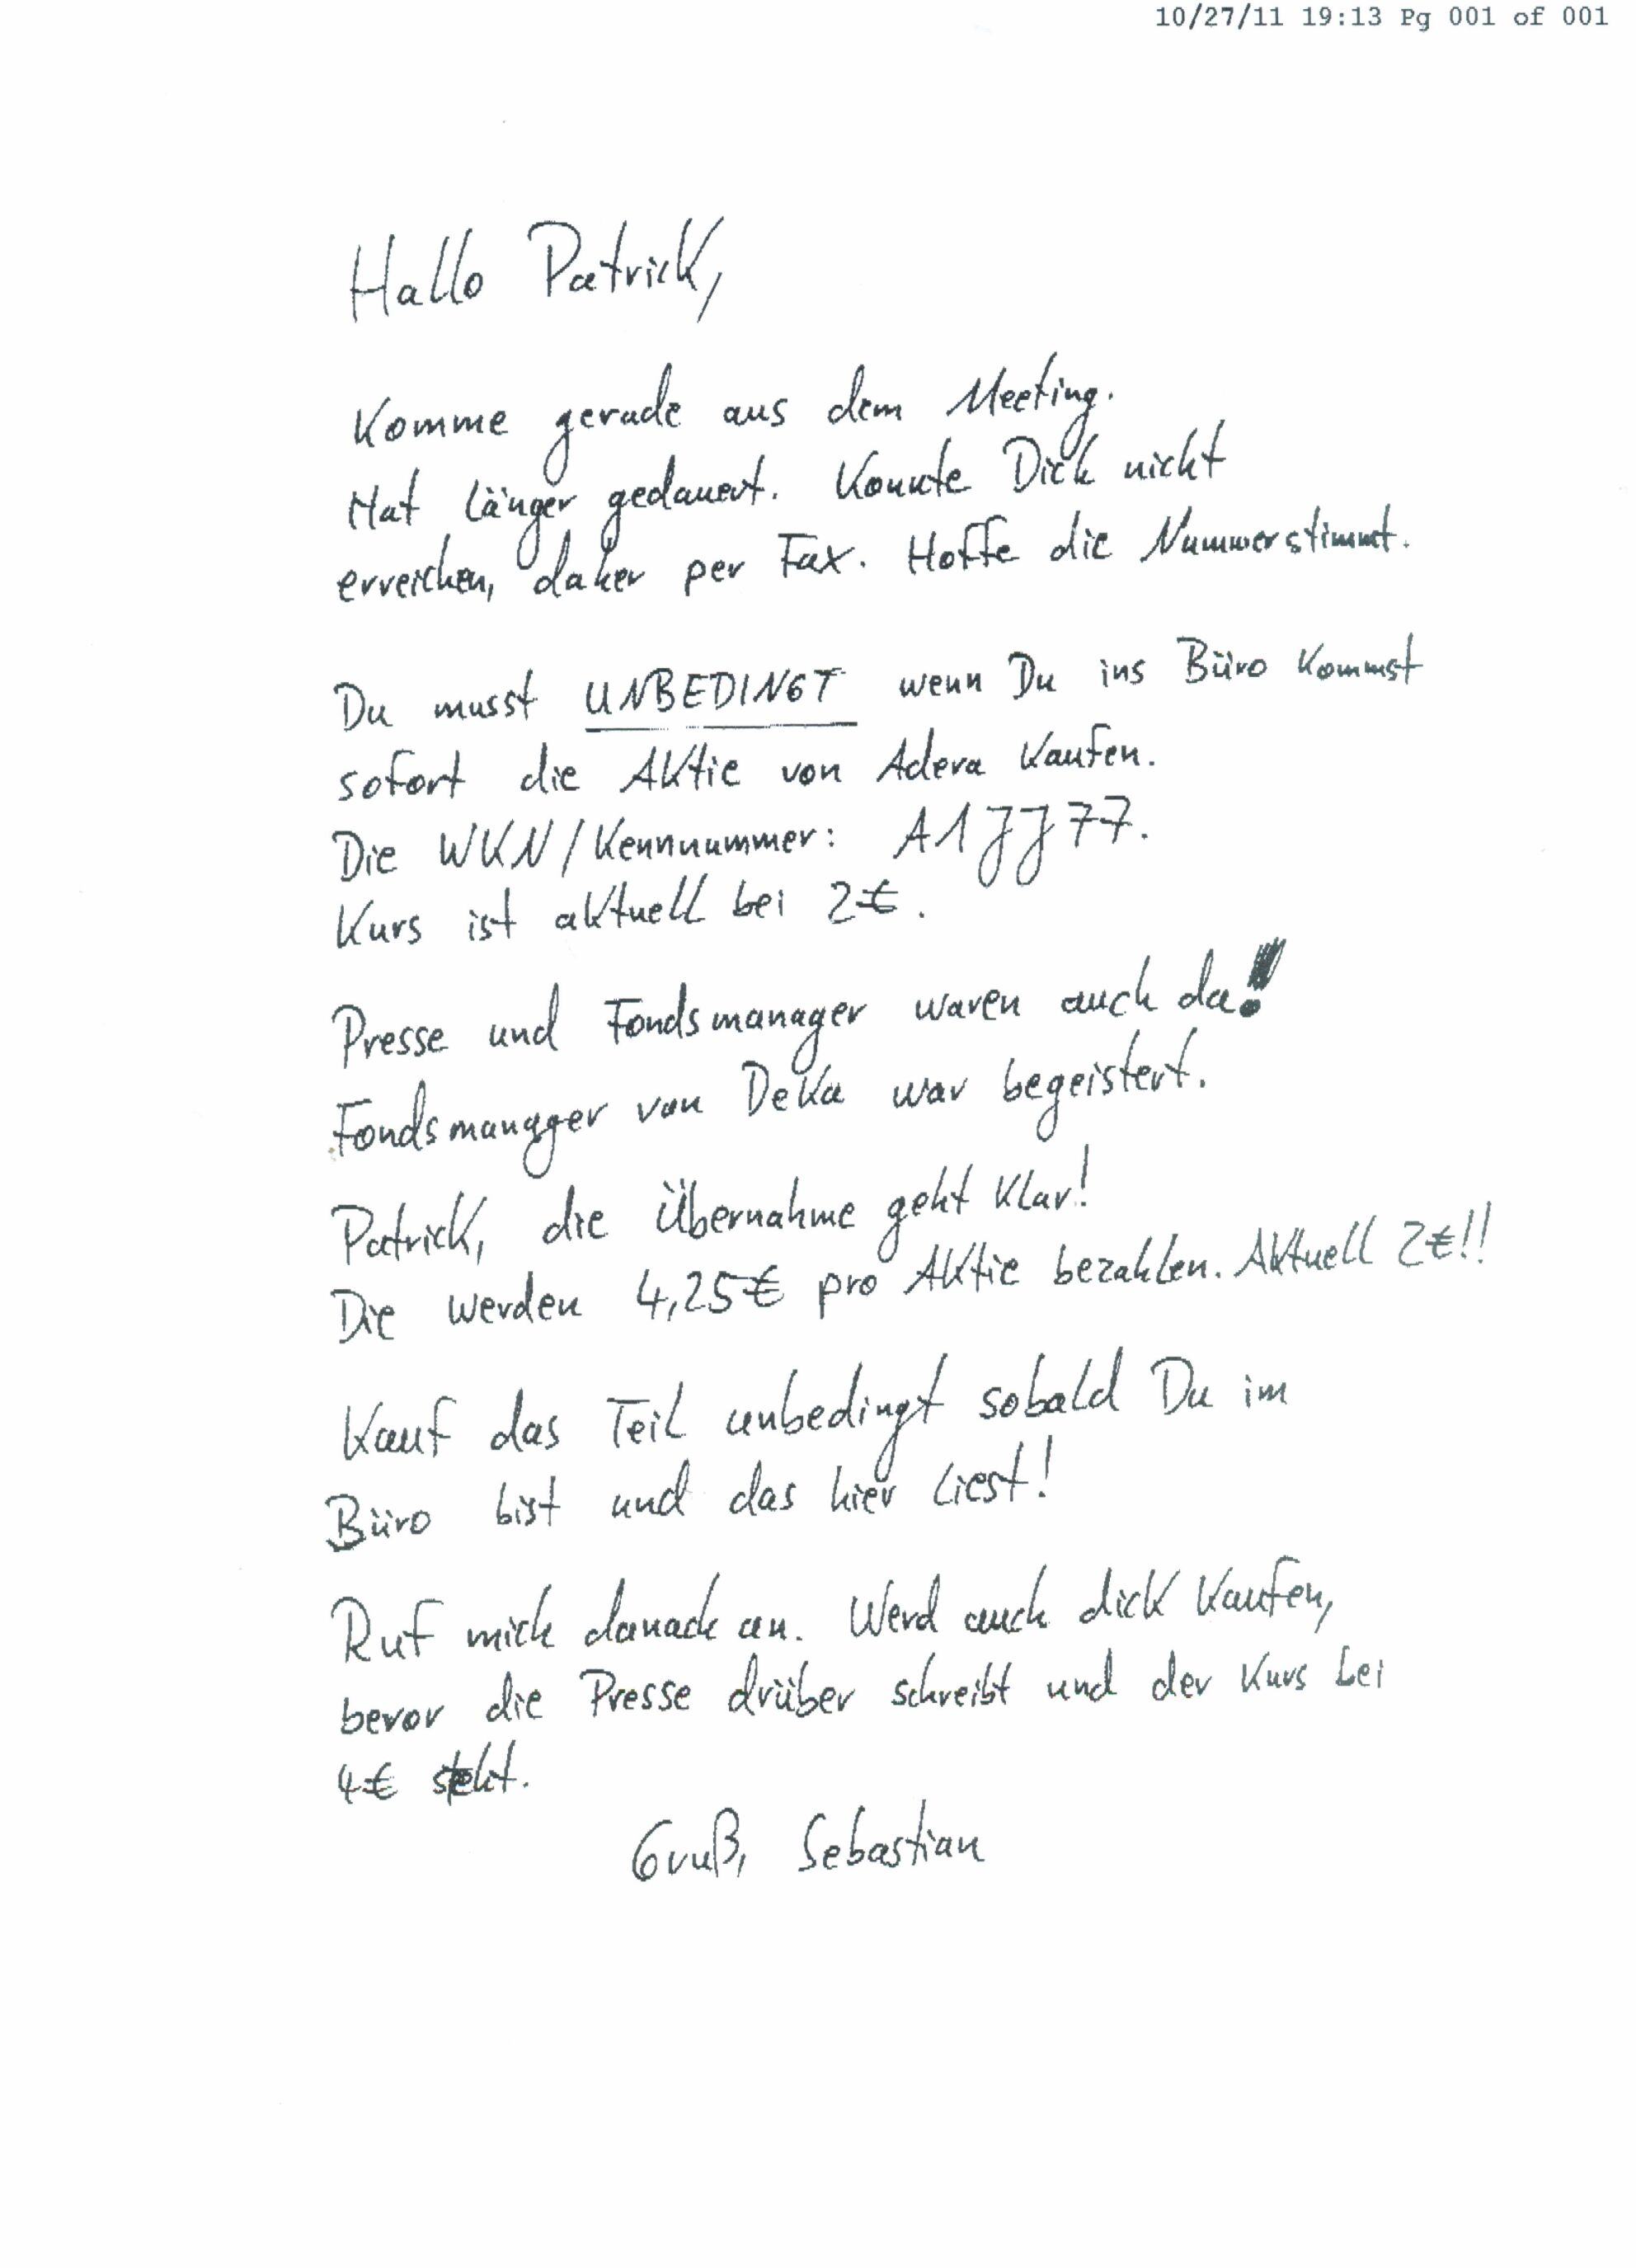 10/27/11 19:13 Pg 001 of 001
Hallo Patrick,
Komme gerade aus dem Meeting.
Hat länger gedauert. Konnte Dich nicht
erreichen, daher per Fax. Hoffe die Nummer stimmt.
Du musst UNBEDINGT wenn Du ins Büro kommst
sofort die Aktie von Adera kaufen.
Die WKN/Kennnummer: A1JJ77.
Kurs ist aktuell bei 2€.
Presse und Fondsmanager waren auch da!
Fondsmanager von Deka war begeistert.
Patrick, die Übernahme geht klar!
Die werden 4,25€ pro Aktie bezahlen. Aktuell 2€!!
Kauf das Teil unbedingt sobald Du im
Büro bist und das hier liest!
Ruf mich danach an. Werd auch dick kaufen,
bevor die Presse drüber schreibt und der Kurs bei
4€ steht.
Gruß, Sebastian